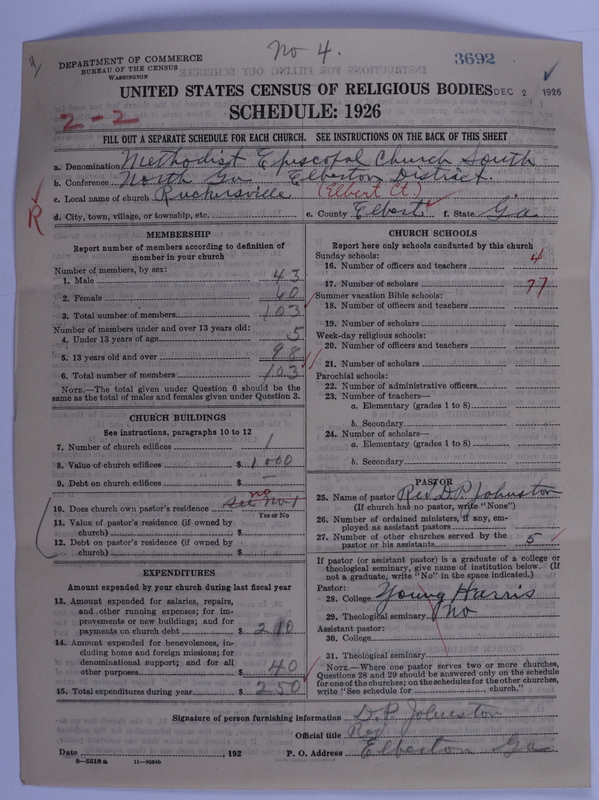 No 4.
DEPARTMENT OF COMMERCE
BUREAU OF THE CENSUS
WASHINGTON
3692
UNITED STATES CENSUS OF RELIGIOUS BODIES
DEC 2 1926
SCHEDULE: 1926
2-2
FILL OUT A SEPARATE SCHEDULE FOR EACH CHURCH. SEE INSTRUCTIONS ON THE BACK OF THIS SHEET
a. Denomination Methodist Episcopal Church South
b. Conference North Ga Elberton District.
c. Local name of church Ruckersville (Elbert Ct.)
R
d. City, town, village, or township, etc. e. County Elbert f. State Ga
MEMBERSHIP
Report number of members according to definition of
member in your church
Number of members, by sex:
1. Male 43
2. Female 60
3. Total number of members 103
Number of members under and over 13 years old:
4. Under 13 years of age 5
5. 13 years old and over 98
6. Total number of members 103
NOTE.—The total given under Question 6 should be the
same as the total of males and females given under Question 3.
CHURCH BUILDINGS
See instructions, paragraphs 10 to 12
7. Number of church edifices 1
8. Value of church edifices $ 1000
9. Debt on church edifices $ —
10. Does church own pastor's residence See No 1 no
Yes or No
11. Value of pastor's residence (if owned by
church) $
12. Debt on pastor's residence (if owned by
church) $
EXPENDITURES
Amount expended by your church during last fiscal year
13. Amount expended for salaries, repairs,
and other running expenses; for im-
provements or new buildings; and for
payments on church debt $ 210
14. Amount expended for benevolences, in-
cluding home and foreign missions; for
denominational support; and for all
other purposes $ 40
15. Total expenditures during year $ 250
CHURCH SCHOOLS
Report here only schools conducted by this church
Sunday schools:
16. Number of officers and teachers 4
17. Number of scholars 77
Summer vacation Bible schools:
18. Number of officers and teachers
19. Number of scholars
Week-day religious schools:
20. Number of officers and teachers
21. Number of scholars
Parochial schools:
22. Number of administrative officers
23. Number of teachers—
a. Elementary (grades 1 to 8)
b. Secondary
24. Number of scholars—
a. Elementary (grades 1 to 8)
b. Secondary
PASTOR
25. Name of pastor Rev D.P. Johnston
(If church has no pastor, write "None")
26. Number of ordained ministers, if any, em-
ployed as assistant pastors
27. Number of other churches served by the
pastor or his assistants 5
If pastor (or assistant pastor) is a graduate of a college or
theological seminary, give name of institution below. (If
not a graduate, write "No" in the space indicated.)
Pastor:
28. College Young Harris
29. Theological seminary No
Assistant pastor:
30. College
31. Theological seminary
NOTE.—Where one pastor serves two or more churches,
Questions 28 and 29 should be answered only on the schedule
for one of the churches; on the schedules for the other churches,
write "See schedule for church."
Signature of person furnishing information D.P. Johnston
Official title Rev
Date , 192 P. O. Address Elberton Ga
8—5518a 11—9554b